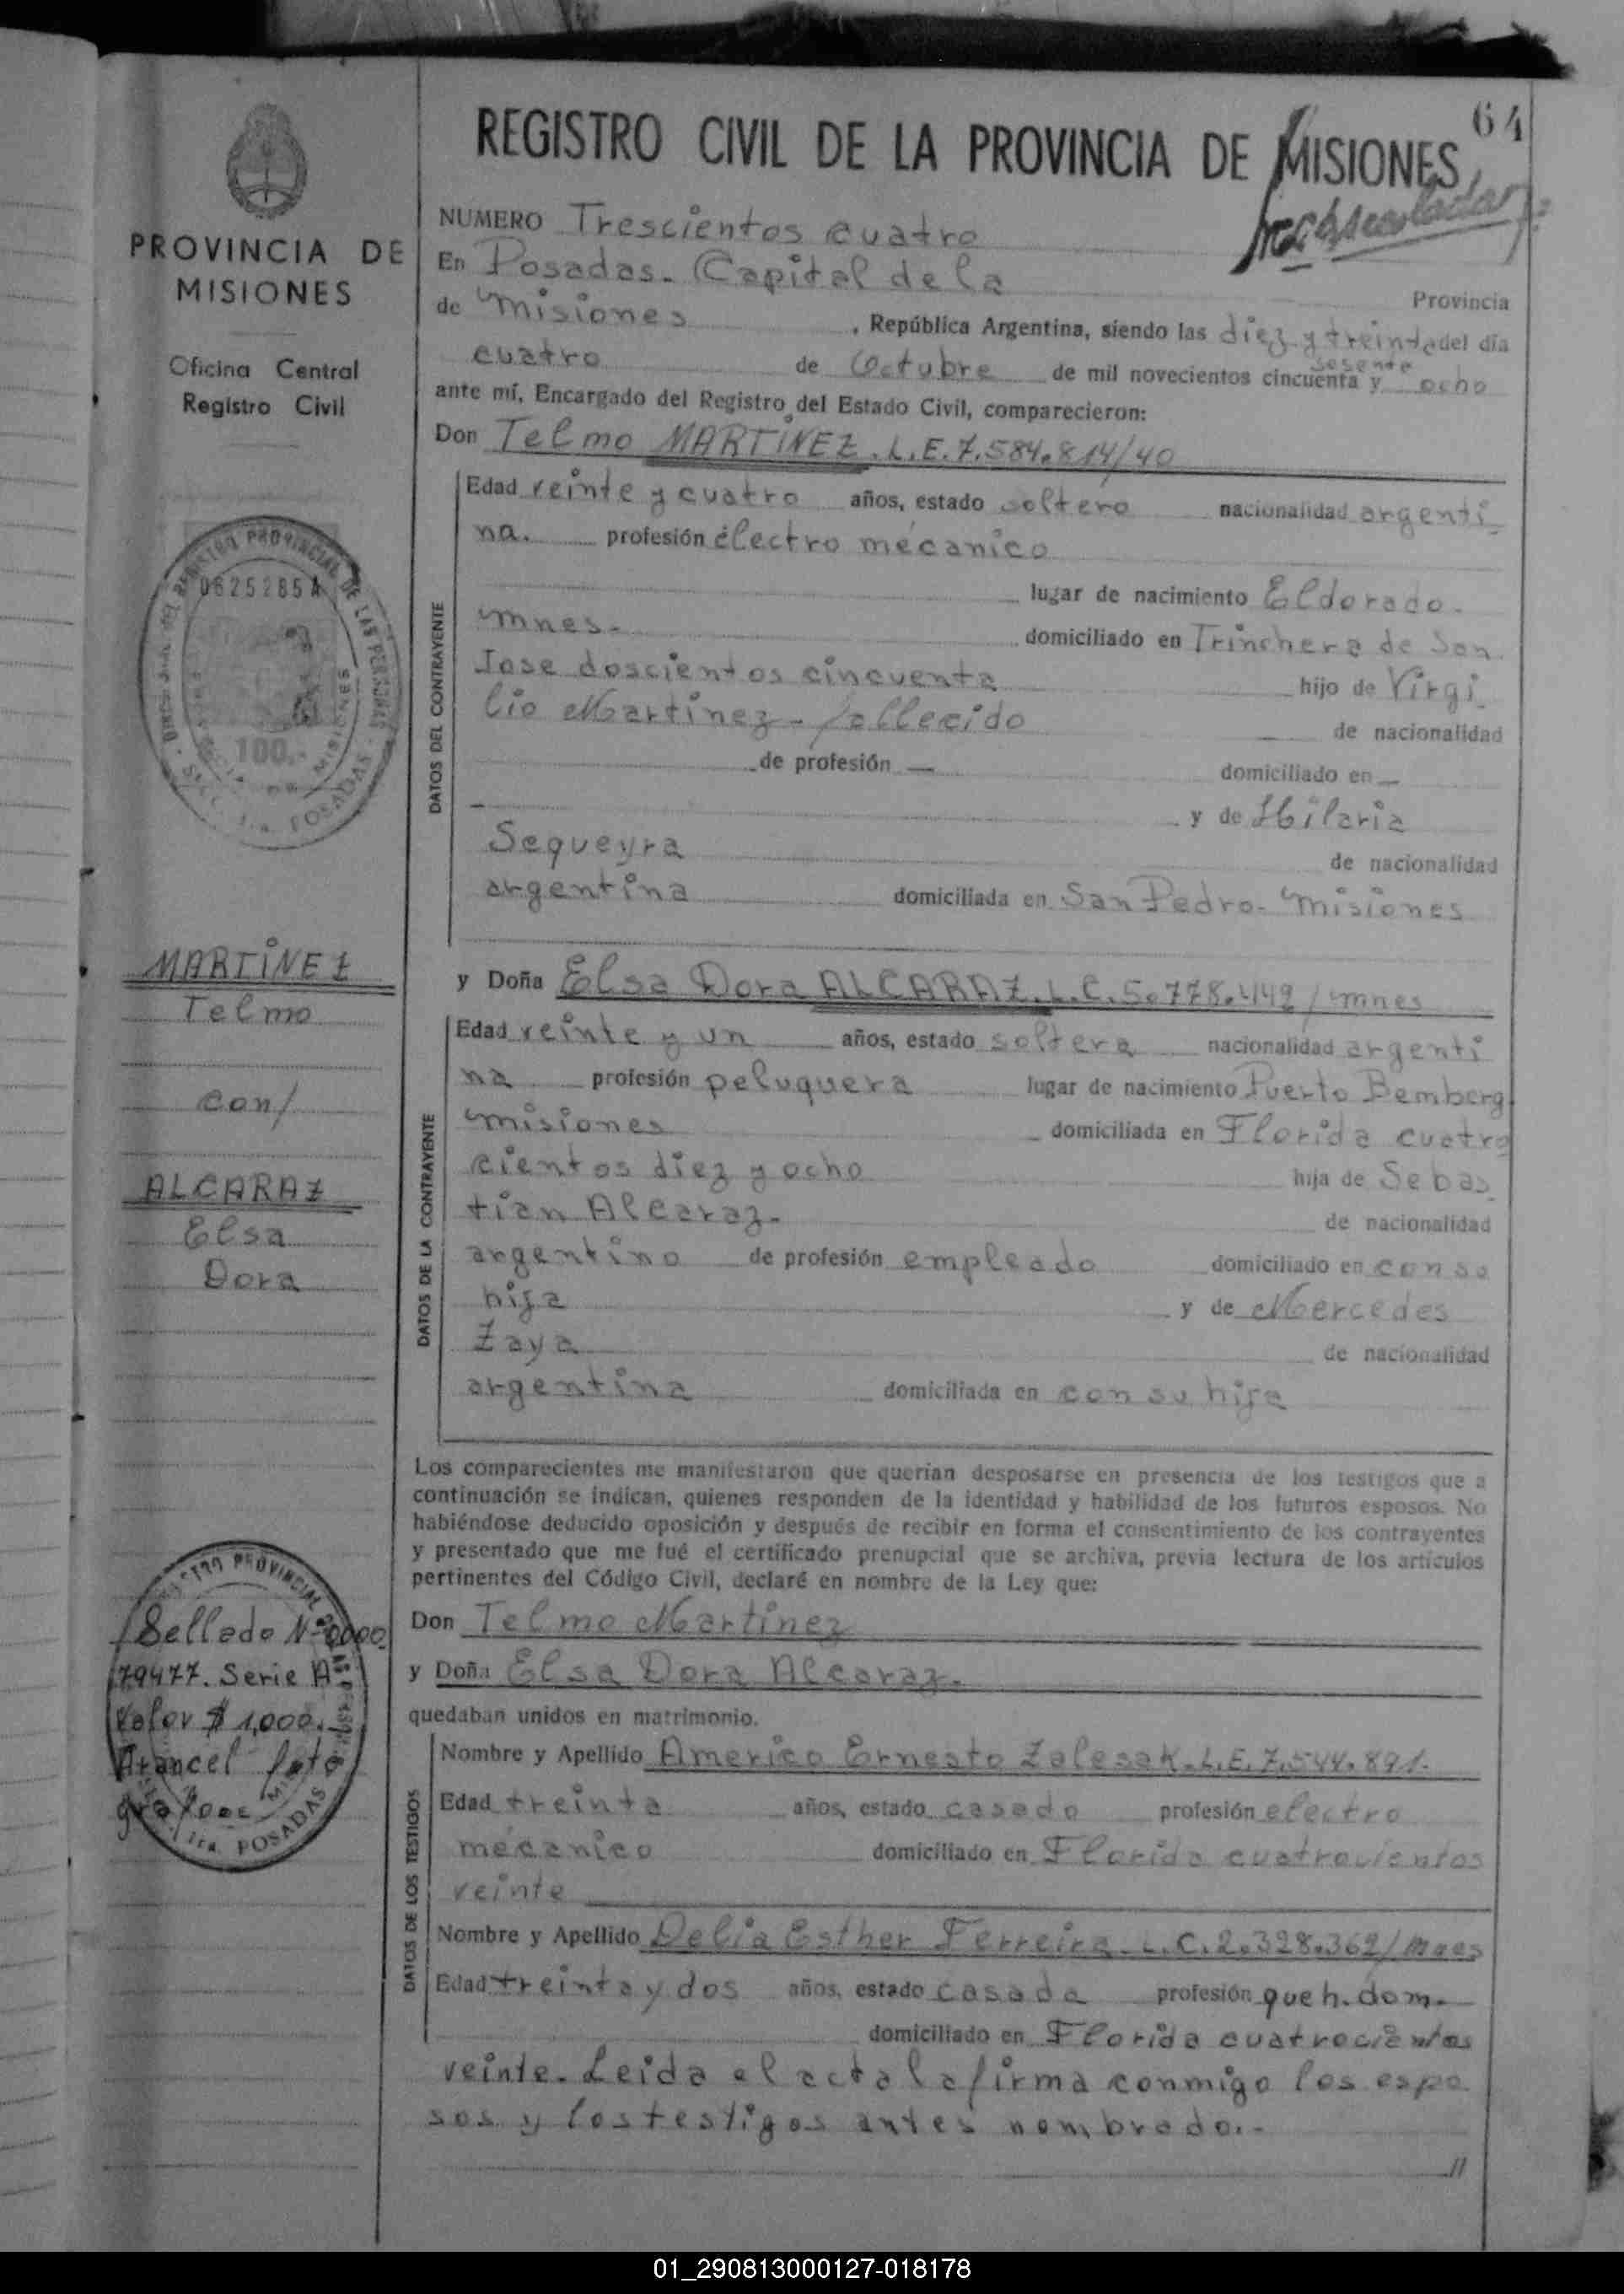 64
REGISTRO CIVIL DE LA PROVINCIA DE MISIONES
PROVINCIA DE
MISIONES
Oficina Central
Registro Civil
0625285A
100.-
POSADAS
MARTÍNEZ
Telmo
con/
ALCARAZ
Elsa
Dora
Sellado Nº 0000
79477. Serie A
Valor $ 1,000.-
Arancel foto
POSADAS
NUMERO Trescientos cuatro
En Posadas. Capital de la Provincia
de Misiones, República Argentina, siendo las diez y treinta del día
cuatro de Octubre de mil novecientos cincuenta y sesenta ocho
ante mí, Encargado del Registro del Estado Civil, comparecieron:
Don Telmo MARTÍNEZ. L.E.7.584.814/40
DATOS DEL CONTRAYENTE
Edad veinte y cuatro años, estado soltero nacionalidad argenti
na. profesión electro mécanico
lugar de nacimiento Eldorado.
mnes. domiciliado en Trinchera de San
Jose doscientos cincuenta hijo de Virgi
lio Martinez. fallecido de nacionalidad
de profesión — domiciliado en —
- y de Hilaria
Sequeyra de nacionalidad
argentina domiciliada en San Pedro- Misiones
y Doña Elsa Dora ALCARAZ. L.C.5.778.442/mnes
DATOS DE LA CONTRAYENTE
Edad veinte y un años, estado soltera nacionalidad argenti
na profesión peluquera lugar de nacimiento Puerto Bemberg
misiones domiciliada en Florida cuatro
cientos diez y ocho hija de Sebas
tian Alcaraz. de nacionalidad
argentino de profesión empleado domiciliado en con su
hija y de Mercedes
Zaya de nacionalidad
argentina domiciliada en con su hija
Los comparecientes me manifestaron que querían desposarse en presencia de los testigos que a
continuación se indican, quienes responden de la identidad y habilidad de los futuros esposos. No
habiéndose deducido oposición y después de recibir en forma el consentimiento de los contrayentes
y presentado que me fué el certificado prenupcial que se archiva, previa lectura de los artículos
pertinentes del Código Civil, declaré en nombre de la Ley que:
Don Telmo Martinez
y Doña Elsa Dora Alcaraz.
quedaban unidos en matrimonio.
DATOS DE LOS TESTIGOS
Nombre y Apellido Americo Ernesto Zalesak. L.E.7.544.891.
Edad treinta años, estado casado profesión electro
mécanico domiciliado en Florida cuatrocientos
veinte
Nombre y Apellido Delia Esther Ferreira. L.C.2.328.362/mnes
Edad treinta y dos años, estado casada profesión queh.dom.
domiciliado en Florida cuatrocientos
veinte. Leida el acta la firma conmigo los espo
sos y los testigos antes nombrado.-
//
01_290813000127-018178